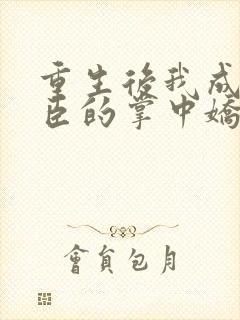 重生後我成
臣的掌中嬌
會員包月